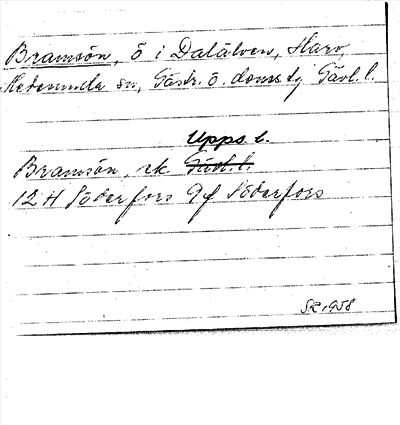 Bramsön, ö i Dalälven, Harv,
Hedesunda sn, Gästr. ö. doms. tg Gävl. l.
Upps. l.
Bramsön, ek Gävl. l.
12 H Söderfors 9f Söderfors
SR 1958